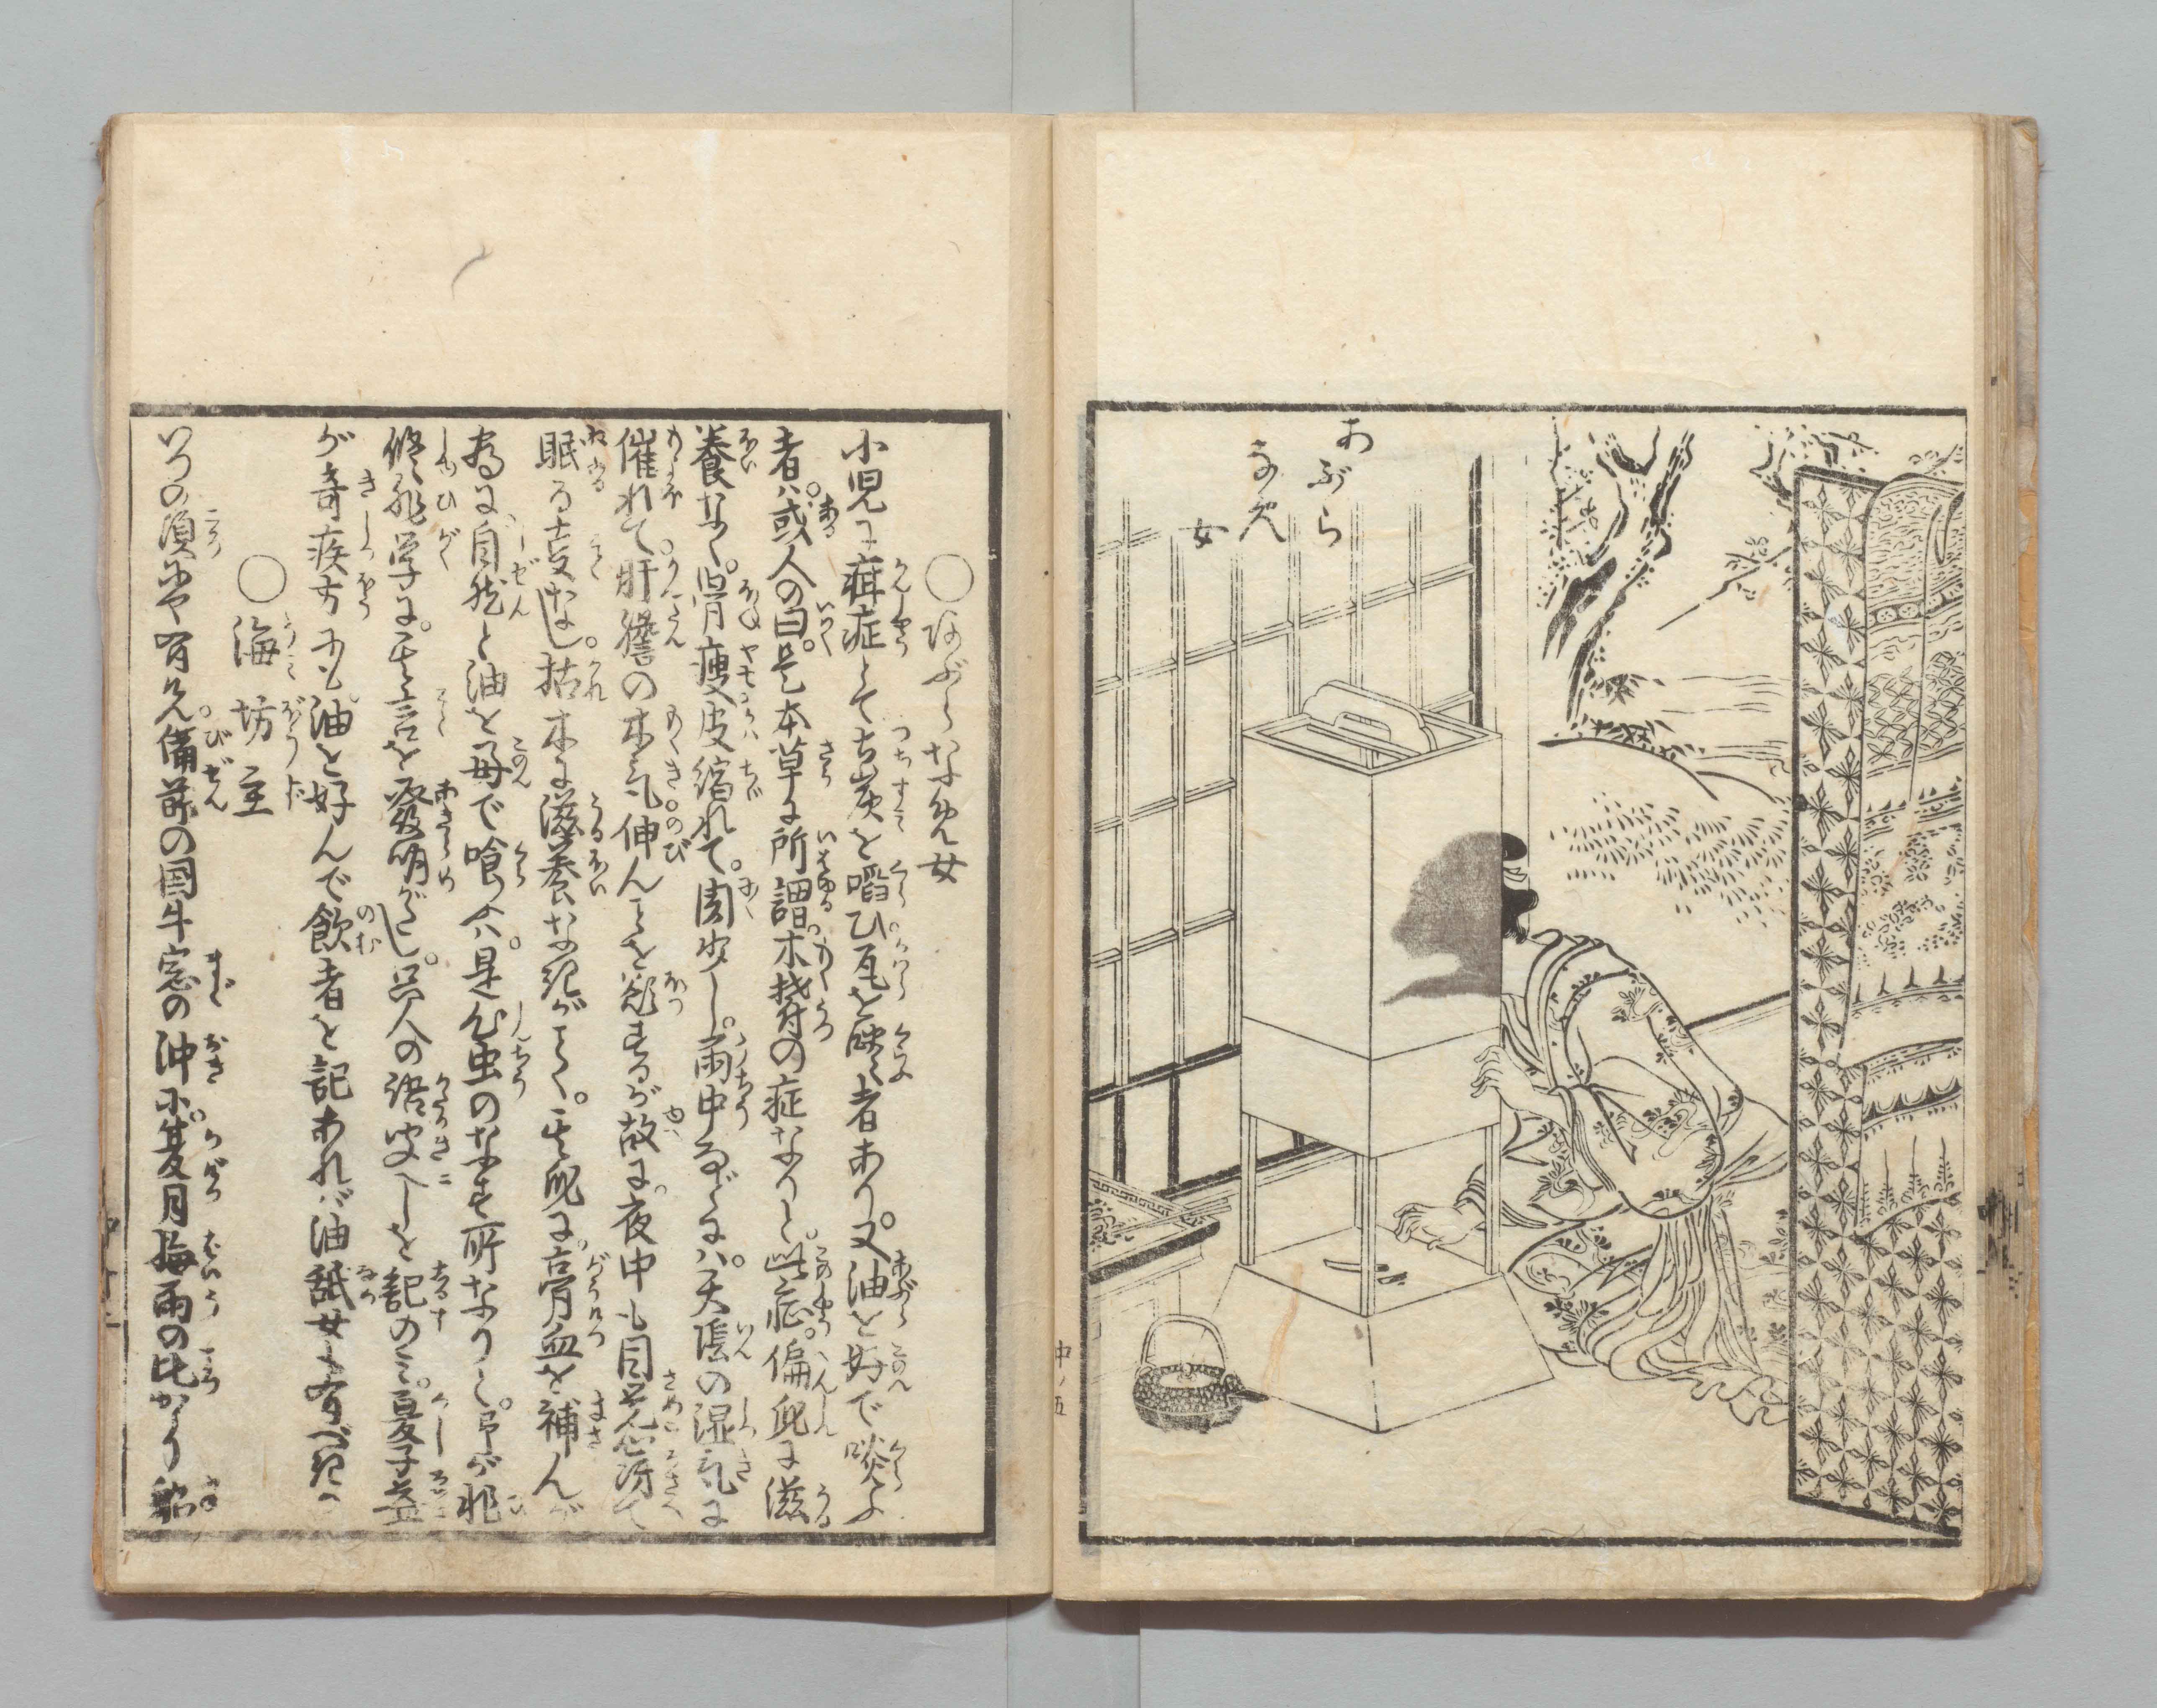 あぶら
なめ
女
〇油ぶらなめ女
小児に疳症とて土炭を嚼ひ瓦を喰ふ者あり。又油を好で啖ふ
者ハ。或人の曰。是本草に所謂。木鬱の症なりと。此症。偏に滋
養なく。骨瘦皮縮れて。肉少し。雨中などにハ。天陰の湿気に
催れて。肝膽の木気。伸んことを慾するが故に。夜中も目覚心冴て
眠る事なし。枯木に滋養なきがごとく。に膏血を補んが
為に。自然と油を好で喰ふハ。是虫のなす所なりと。予が非
修非学に。言を發明がたし。只人の語しを記のミ。
が奇疾方にも。油を好んで飲者を記あれバ油舐女も有べき
〇海坊主
いつの頃にや有けん。備前の国牛窓の沖に。夏月梅雨の比かより船
中ノ五